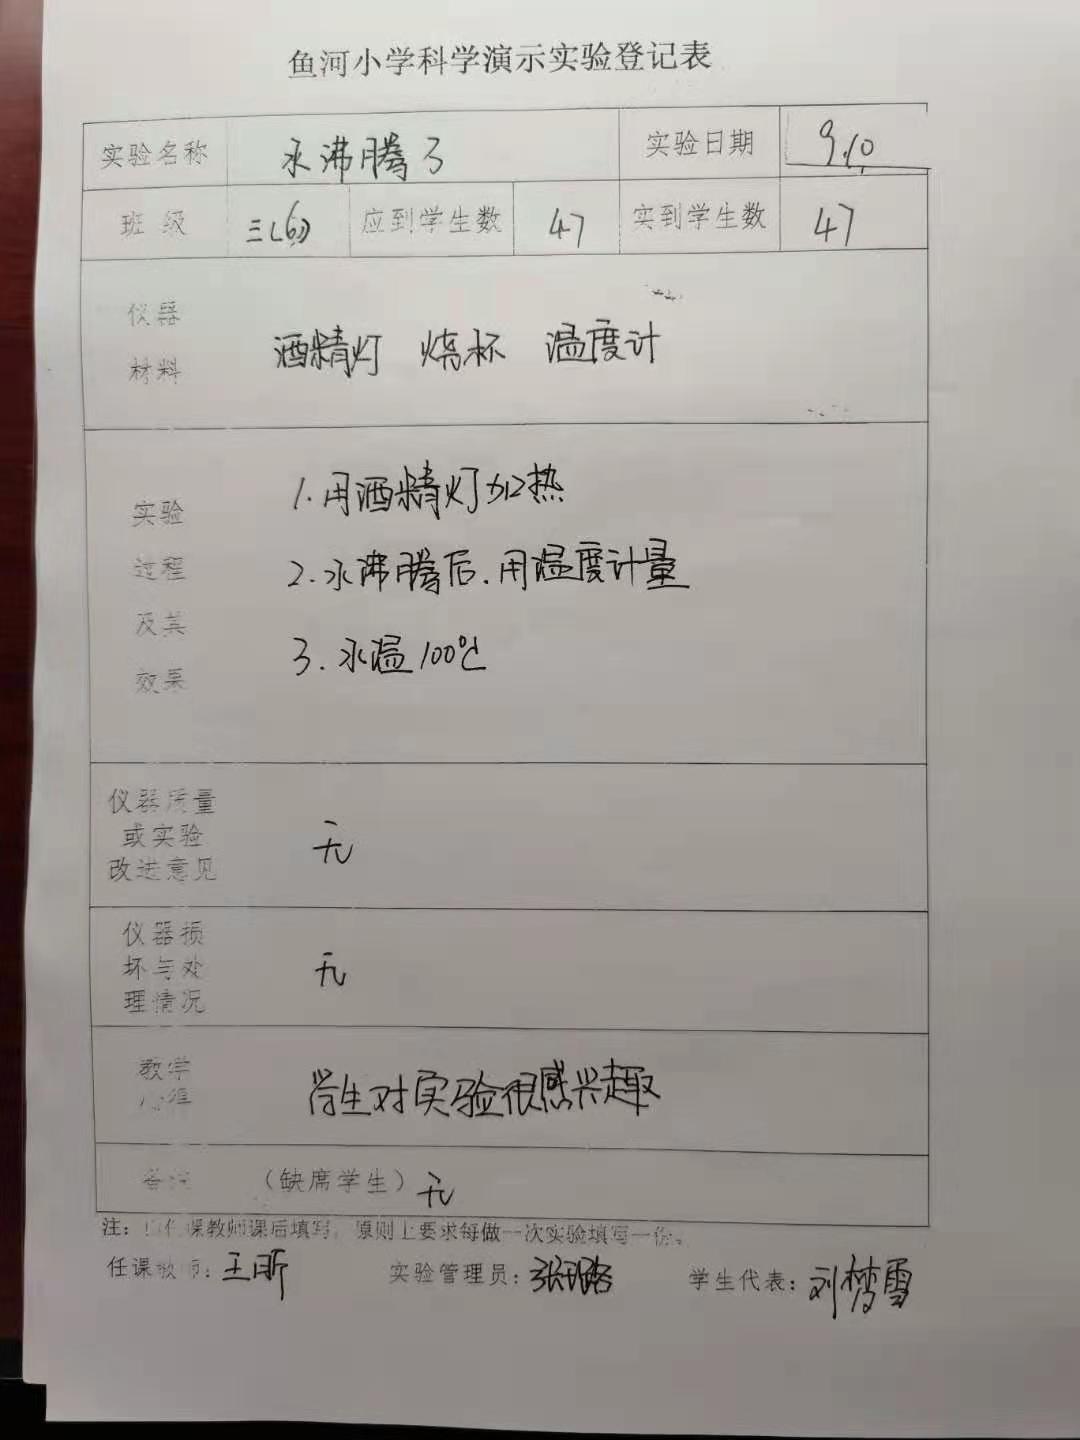 鱼河小学科学演示实验登记表
实验名称 水沸腾了 实验日期 9.10
班 级 三(6) 应到学生数 47 实到学生数 47
仪器
材料
酒精灯 烧杯 温度计
实验
过程
及其
效果
1.用酒精灯加热
2.水沸腾后.用温度计量
3.水温100℃
仪器质量
或实验
改进意见
无
仪器损
坏与处
理情况
无
教学
心得
学生对实验很感兴趣
备注 (缺席学生) 无
注: 课教师课后填写,原则上要求每做一次实验填写一份。
任课教师: 王昕 实验管理员: 学生代表: 刘梦雪